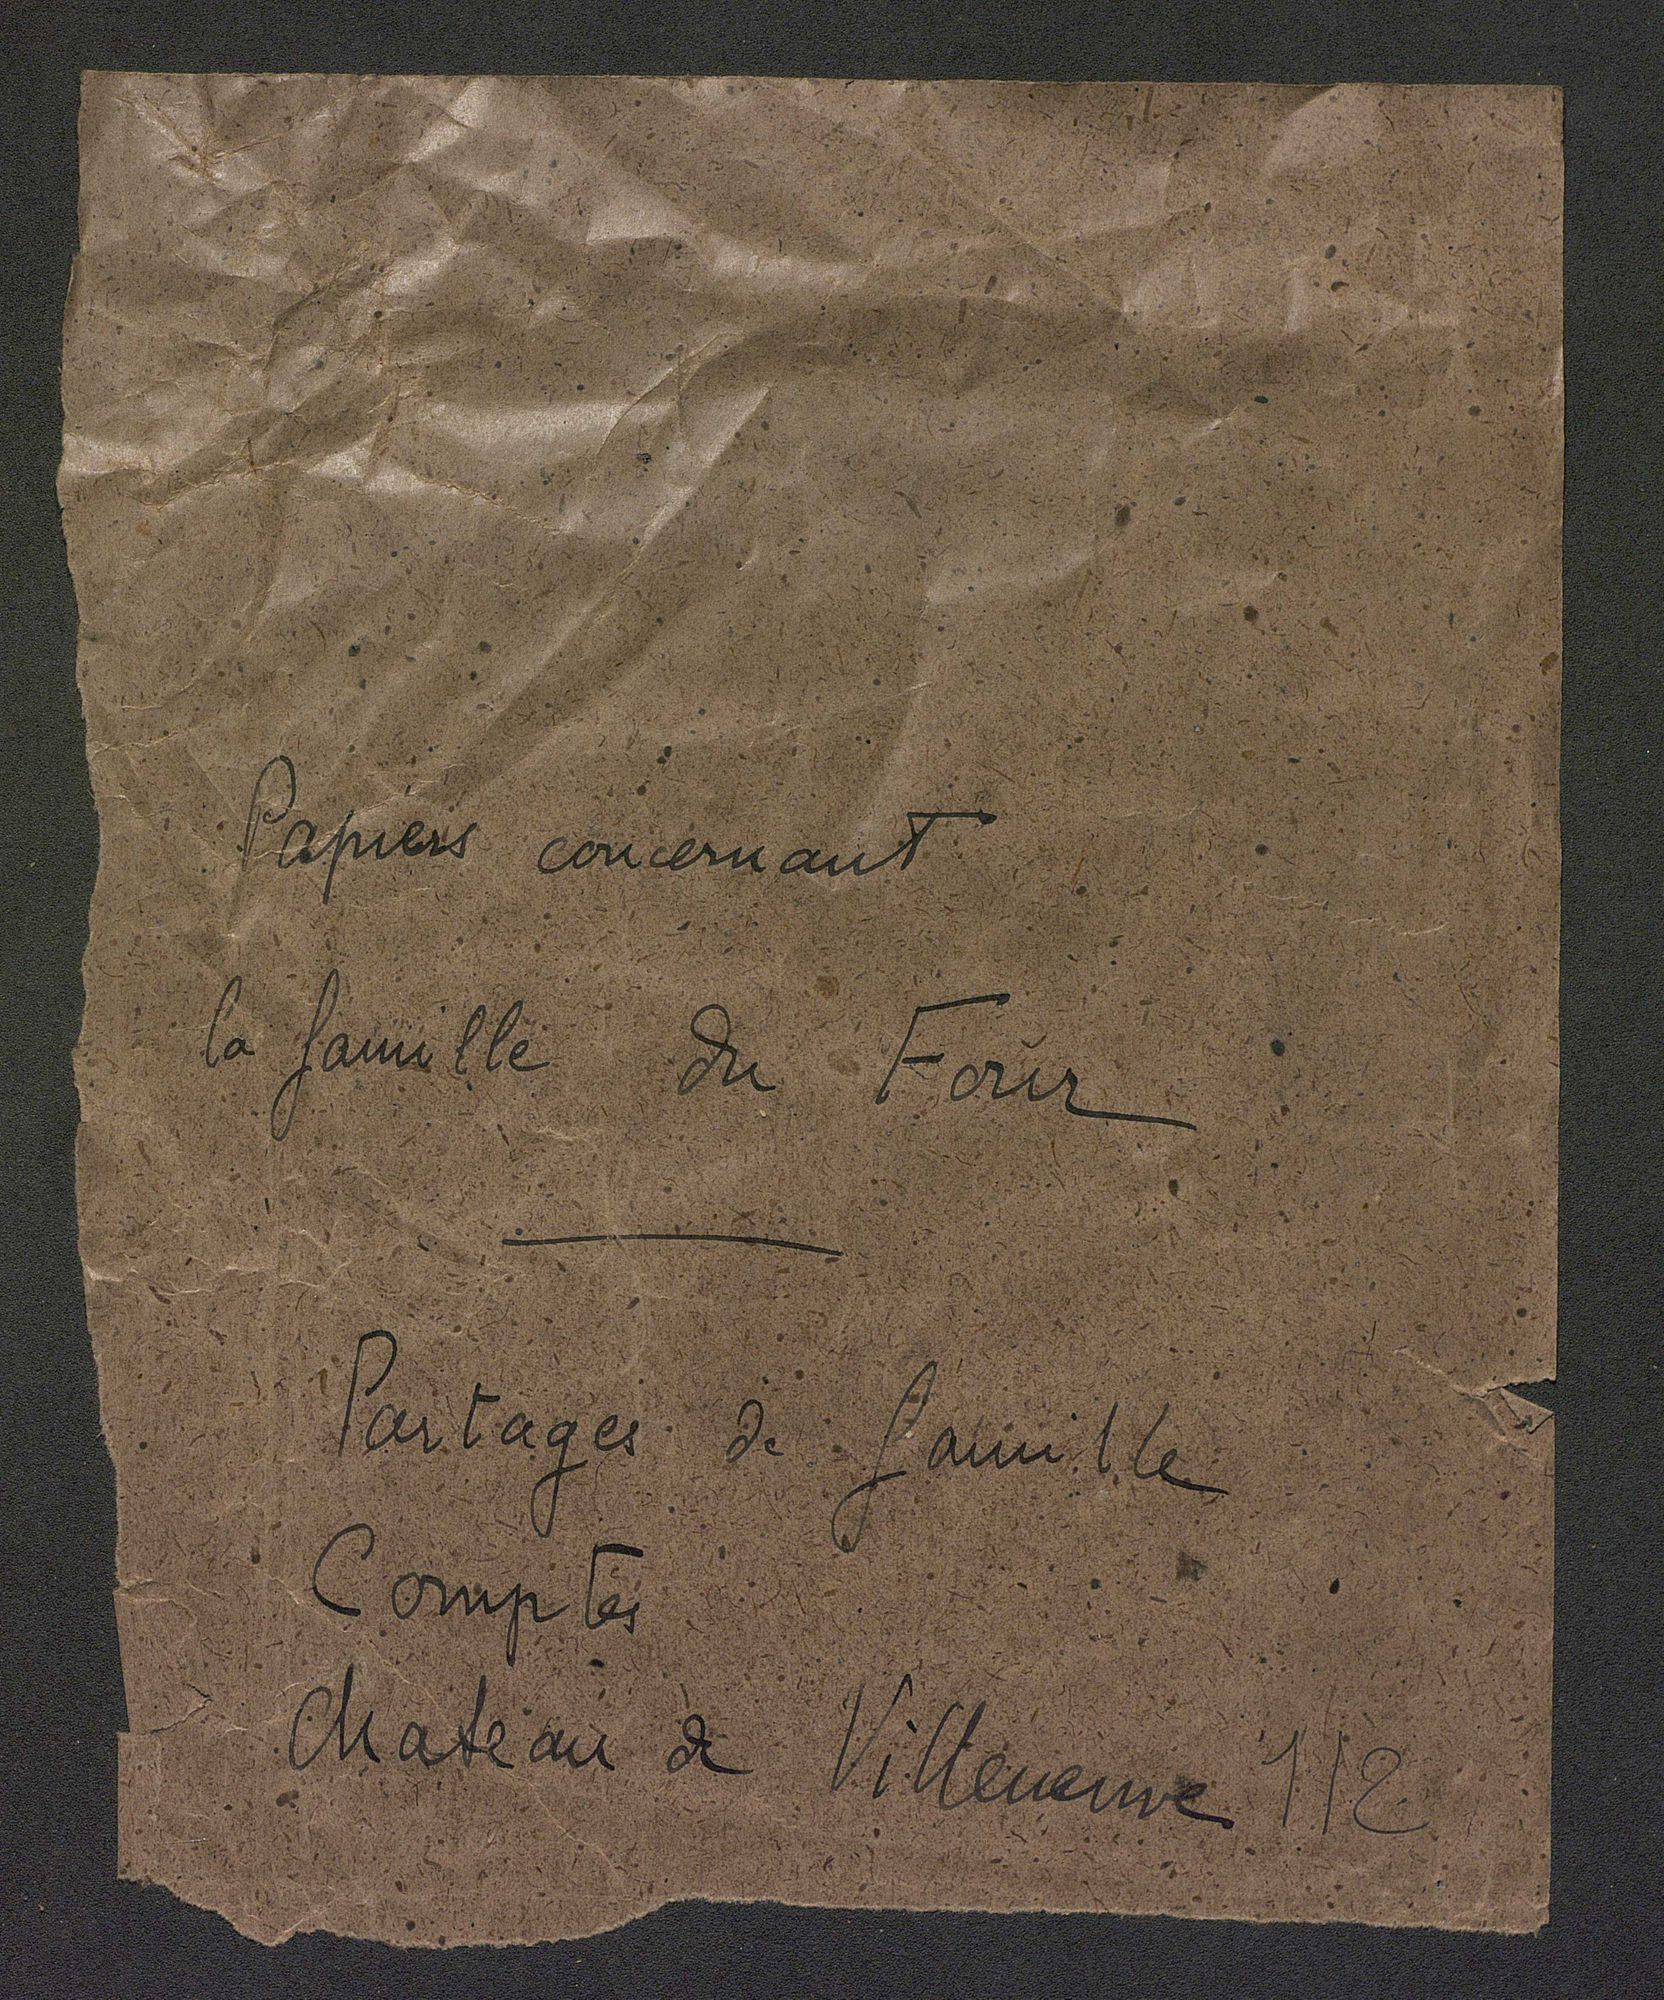 Papiers concernant
la famille du Four
Partages de famille
Comptes
Chateau de Villeneuve 112